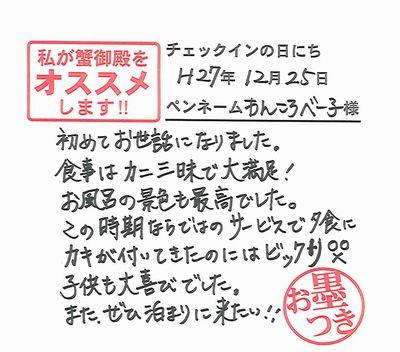 私が蟹御殿を
オススメ
します!!
チェックインの日にち
H27年 12月25日
ペンネームわんころべー子様
初めてお世話になりました。
食事はカニ三昧で大満足!
お風呂の景色も最高でした。
この時期ならではのサービスで夕食に
カキが付いてきたのにはビックリ
子供も大喜びでした。
また、ぜひ泊まりに来たい!!
お墨つき